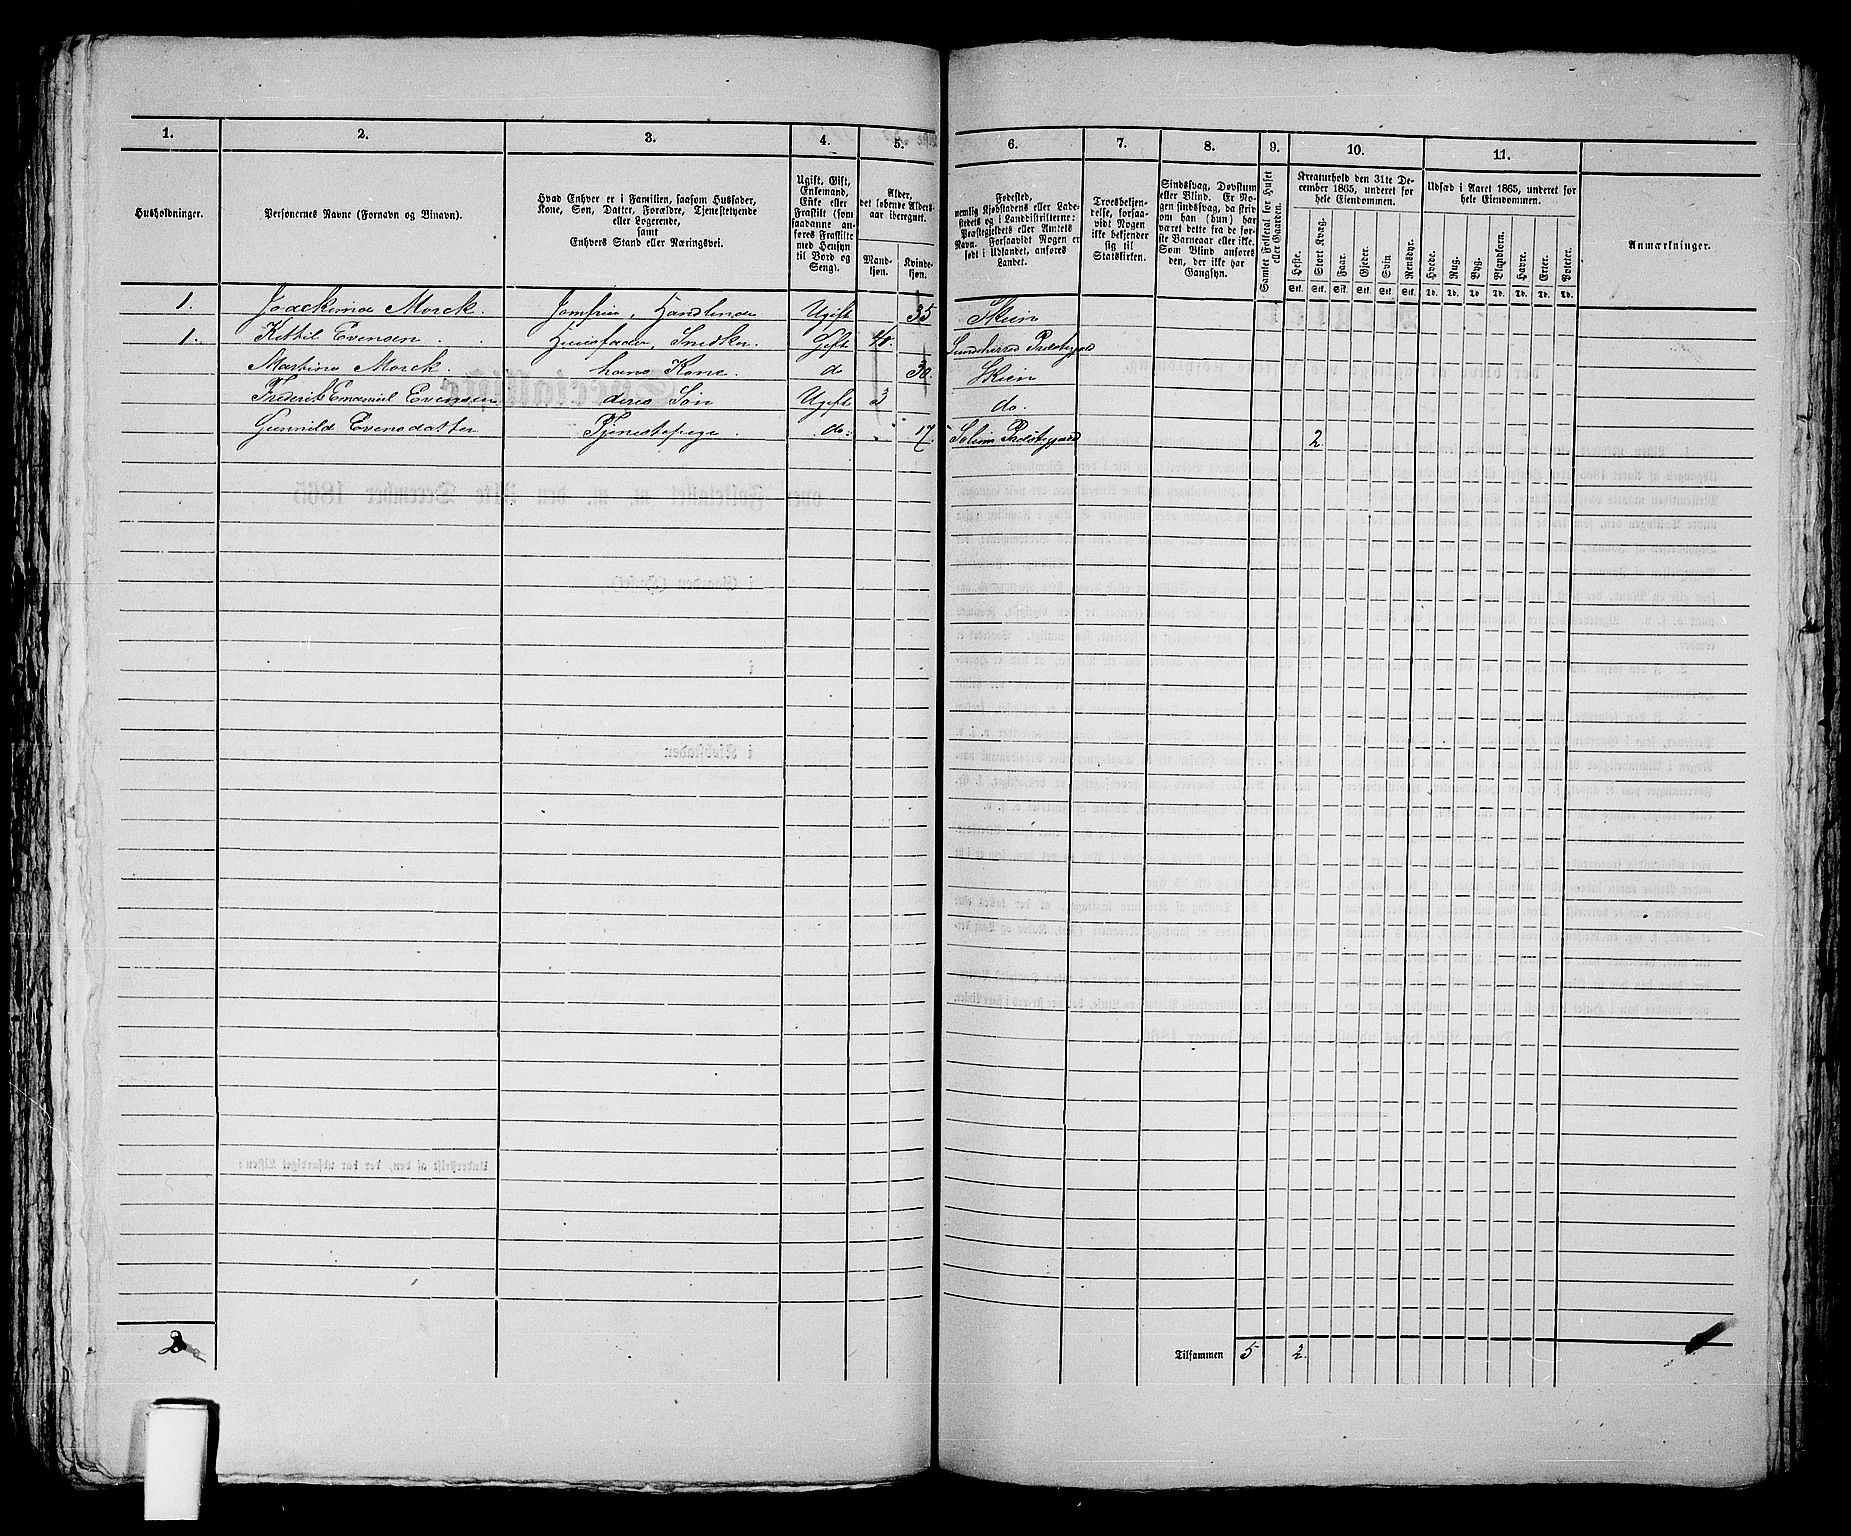 1. 2. 3. 4. 5. 6. 7. 8. 9. 10. 11.
Husholdninger.
Personernes Navne (Fornavn og Binavn).
Hvad Enhver er i Familien, saasom Husfader,
Kone, Søn, Datter, Forældre, Tjenestetyende
eller Logerende,
samt
Enhvers Stand eller Næringsvei.
Ugift, Gift,
Enkemand,
Enke eller
Fraskilt (som
saadanne an-
føres Fraskilte
med Hensyn
til Bord og
Seng).
Alder,
det løbende Alders-
aar iberegnet.
Mand-
kjøn.
Kvinde-
kjøn.
Fødested,
nemlig Kjøbstadens eller Lade-
stedets og i Landdistrikterne:
Præstegjeldets eller Amtets
Navn. Forsaavidt Nogen er
født i Udlandet, anføres
Landet.
Troesbekjen-
delse, forsaa-
vidt Nogen
ikke bekjender
sig til
Statskirken.
Sindssvag, Døvstum
eller Blind. Er No-
gen sindssvag, da skriv
om han (hun) har
været dette fra de før-
ste Barneaar eller ikke.
Som Blind anføres
den, der ikke har
Gangsyn.
Samlet Folketal for Huset
eller Gaarden.
Kreaturhold den 31te De-
cember 1865, underet for
hele Eiendommen.
Heste. Stort Kvæg. Faar. Gjeder. Svin Rensdyr.
Stk. Stk. Stk. Stk. Stk. Stk.
Udsæd i Aaret 1865, underet for
hele Eiendommen.
Hvede. Rug. Byg. Blandkorn. Havre. Erter. Poteter.
Td. Td. Td Td. Td. Td. Td.
Anmærkninger.
1. Joackima Morck. Jomfrue, Handlende Ugift 35 Skien
1. Kittil Evensen Huusfader, Snedker. Gift Sundeherred Præstegjeld
Martine Morck. hans Kone. do 30. Skien
Frederik Emanuel Evensen deres Søn Ugift 3 do.
Gunnild Evensdatter Tjenestepige. do. 17. Præstegjeld 2
Tilsammen 5 2.
2